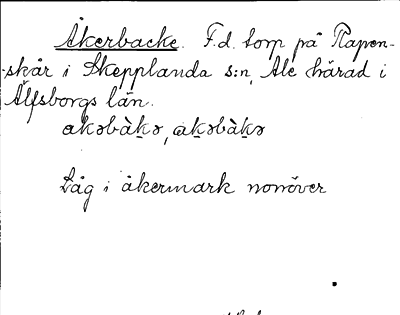 Åkerbacke. F.d. torp på Rapen-
skår i Skepplanda s:n, Ale härad i
Älfsborgs län.
akəbàkə, akəbàkə
Låg i åkermark norröver